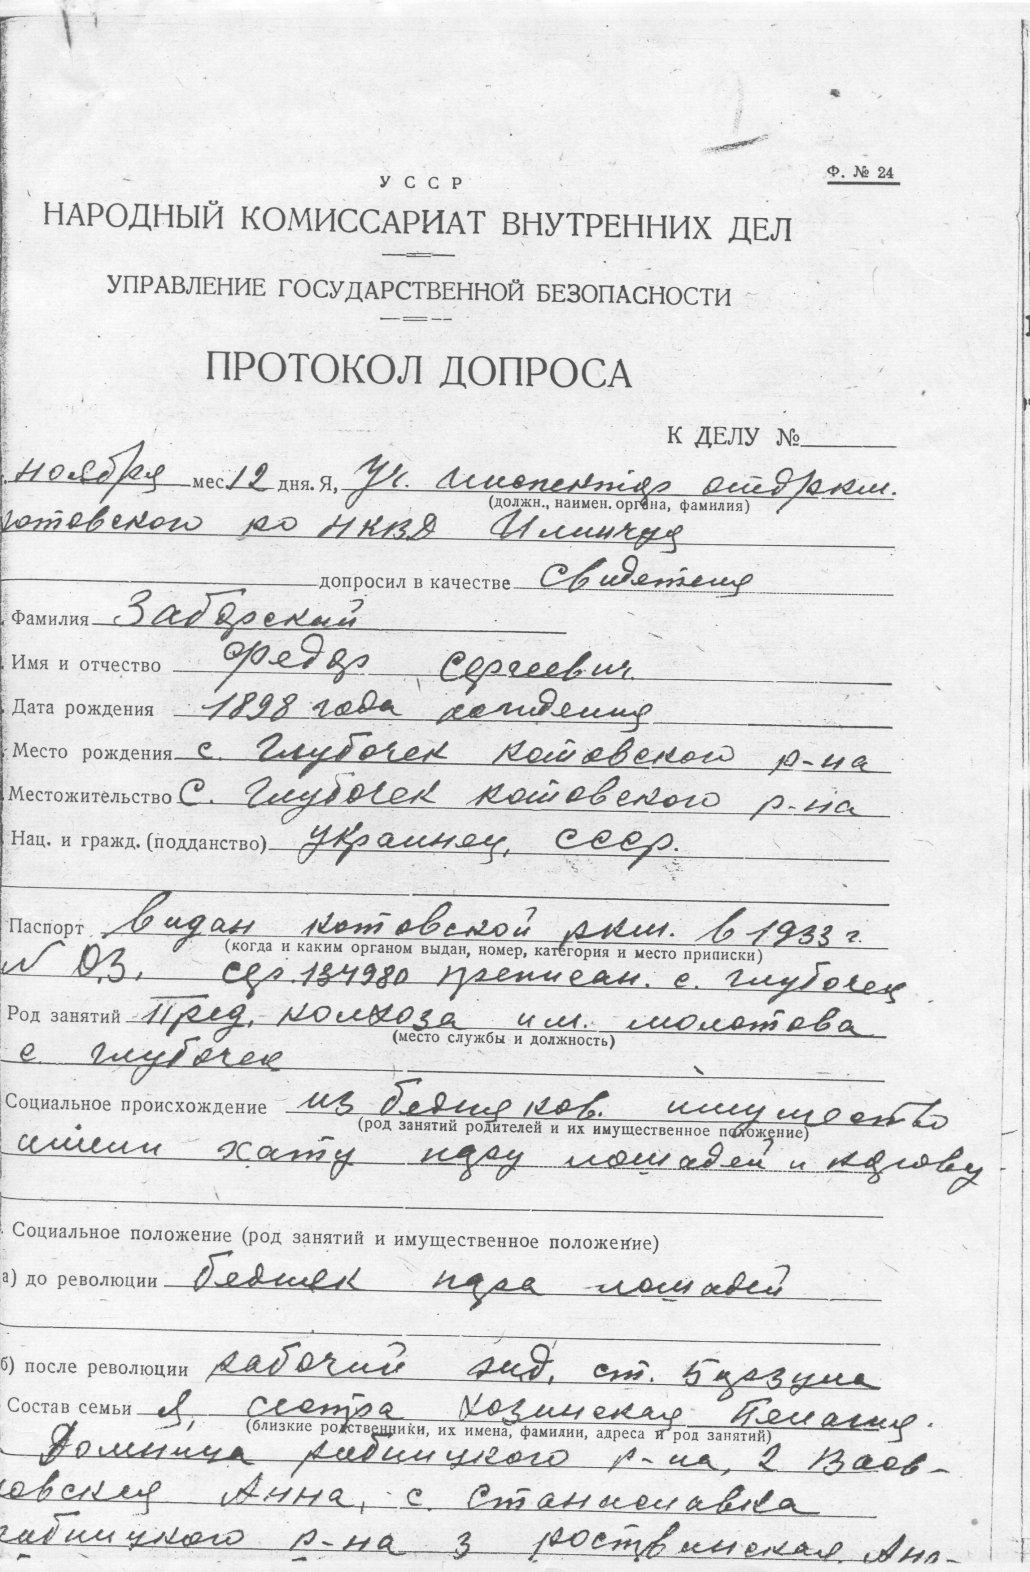 Ф. № 24
УССР
НАРОДНЫЙ КОМИССАРИАТ ВНУТРЕННИХ ДЕЛ
УПРАВЛЕНИЕ ГОСУДАРСТВЕННОЙ БЕЗОПАСНОСТИ
ПРОТОКОЛ ДОПРОСА
К ДЕЛУ №
ноября мес. 12 дня. Я, Уч. инспектор отд ркм.
(должн., наимен. органа, фамилия)
котовского ро НКВД
допросил в качестве свидетеля
Фамилия Заборский
Имя и отчество Федор Сергеевич
Дата рождения 1898 года рождения
Место рождения с. Глубочек котовского р-на
Местожительство С. Глубочек котовского р-на
Нац. и гражд. (подданство) украинец, СССР.
Паспорт видан котовской ркм. в 1933 г.
(когда и каким органом выдан, номер, категория и место приписки)
N 03, сер. 134980 преписан. с. глубочек
Род занятий Пред. колхоза им. молотова
(место службы и должность)
с глубочек
Социальное происхождение из бедняков. имущество
(род занятий родителей и их имущественное положение)
имели хату пару лошадей и корову
Социальное положение (род занятий и имущественное положение)
а) до революции бедняк пара лошадей
б) после революции рабочий жид. ст. Борзула
Состав семьи Я, сестра Козинская Пелагия.
(близкие родственники, их имена, фамилии, адреса и род занятий)
Домница рибницкого р-на, 2
Анна, с. Станиславка
рибницкого р-на 3